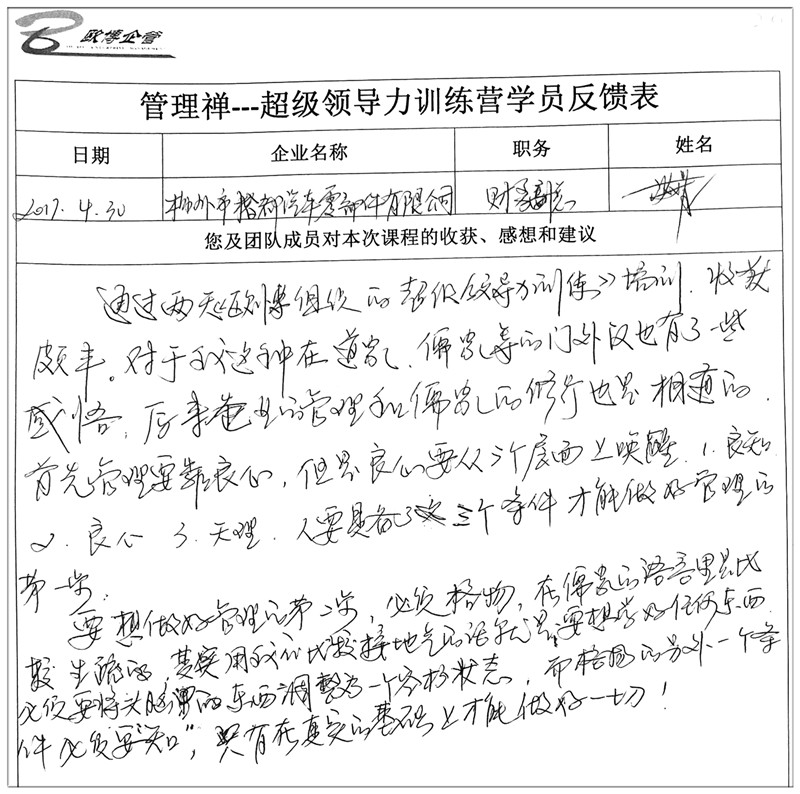 欧博企管
管理禅---超级领导力训练营学员反馈表
日期 企业名称 职务 姓名
2017.4.30 柳州市 汽车零部件有限公司 财务
您及团队成员对本次课程的收获、感想和建议
通过两天欧博组织的《超级领导力训练》培训、收获
颇丰。对于我这种在道家、儒家等的门外汉也有了一些
感悟,原来 的管理和儒家的修行也是相通的.
首先管理要靠良心,但是良心要从三个层面上唤醒.1.良知
2.良心 3.天理.人要具备了这三个条件才能做好管理的
第一步.
要想做好管理的第二步,必须格物,在儒家的语言里是比
较生 的,其实用我们比较接地气的话就是要想学好任何东西
必须要将头脑里的东西调整为一个 状态,而格 的另外一个条
件必须要"知",只有在真实的基础上才能做好一切!